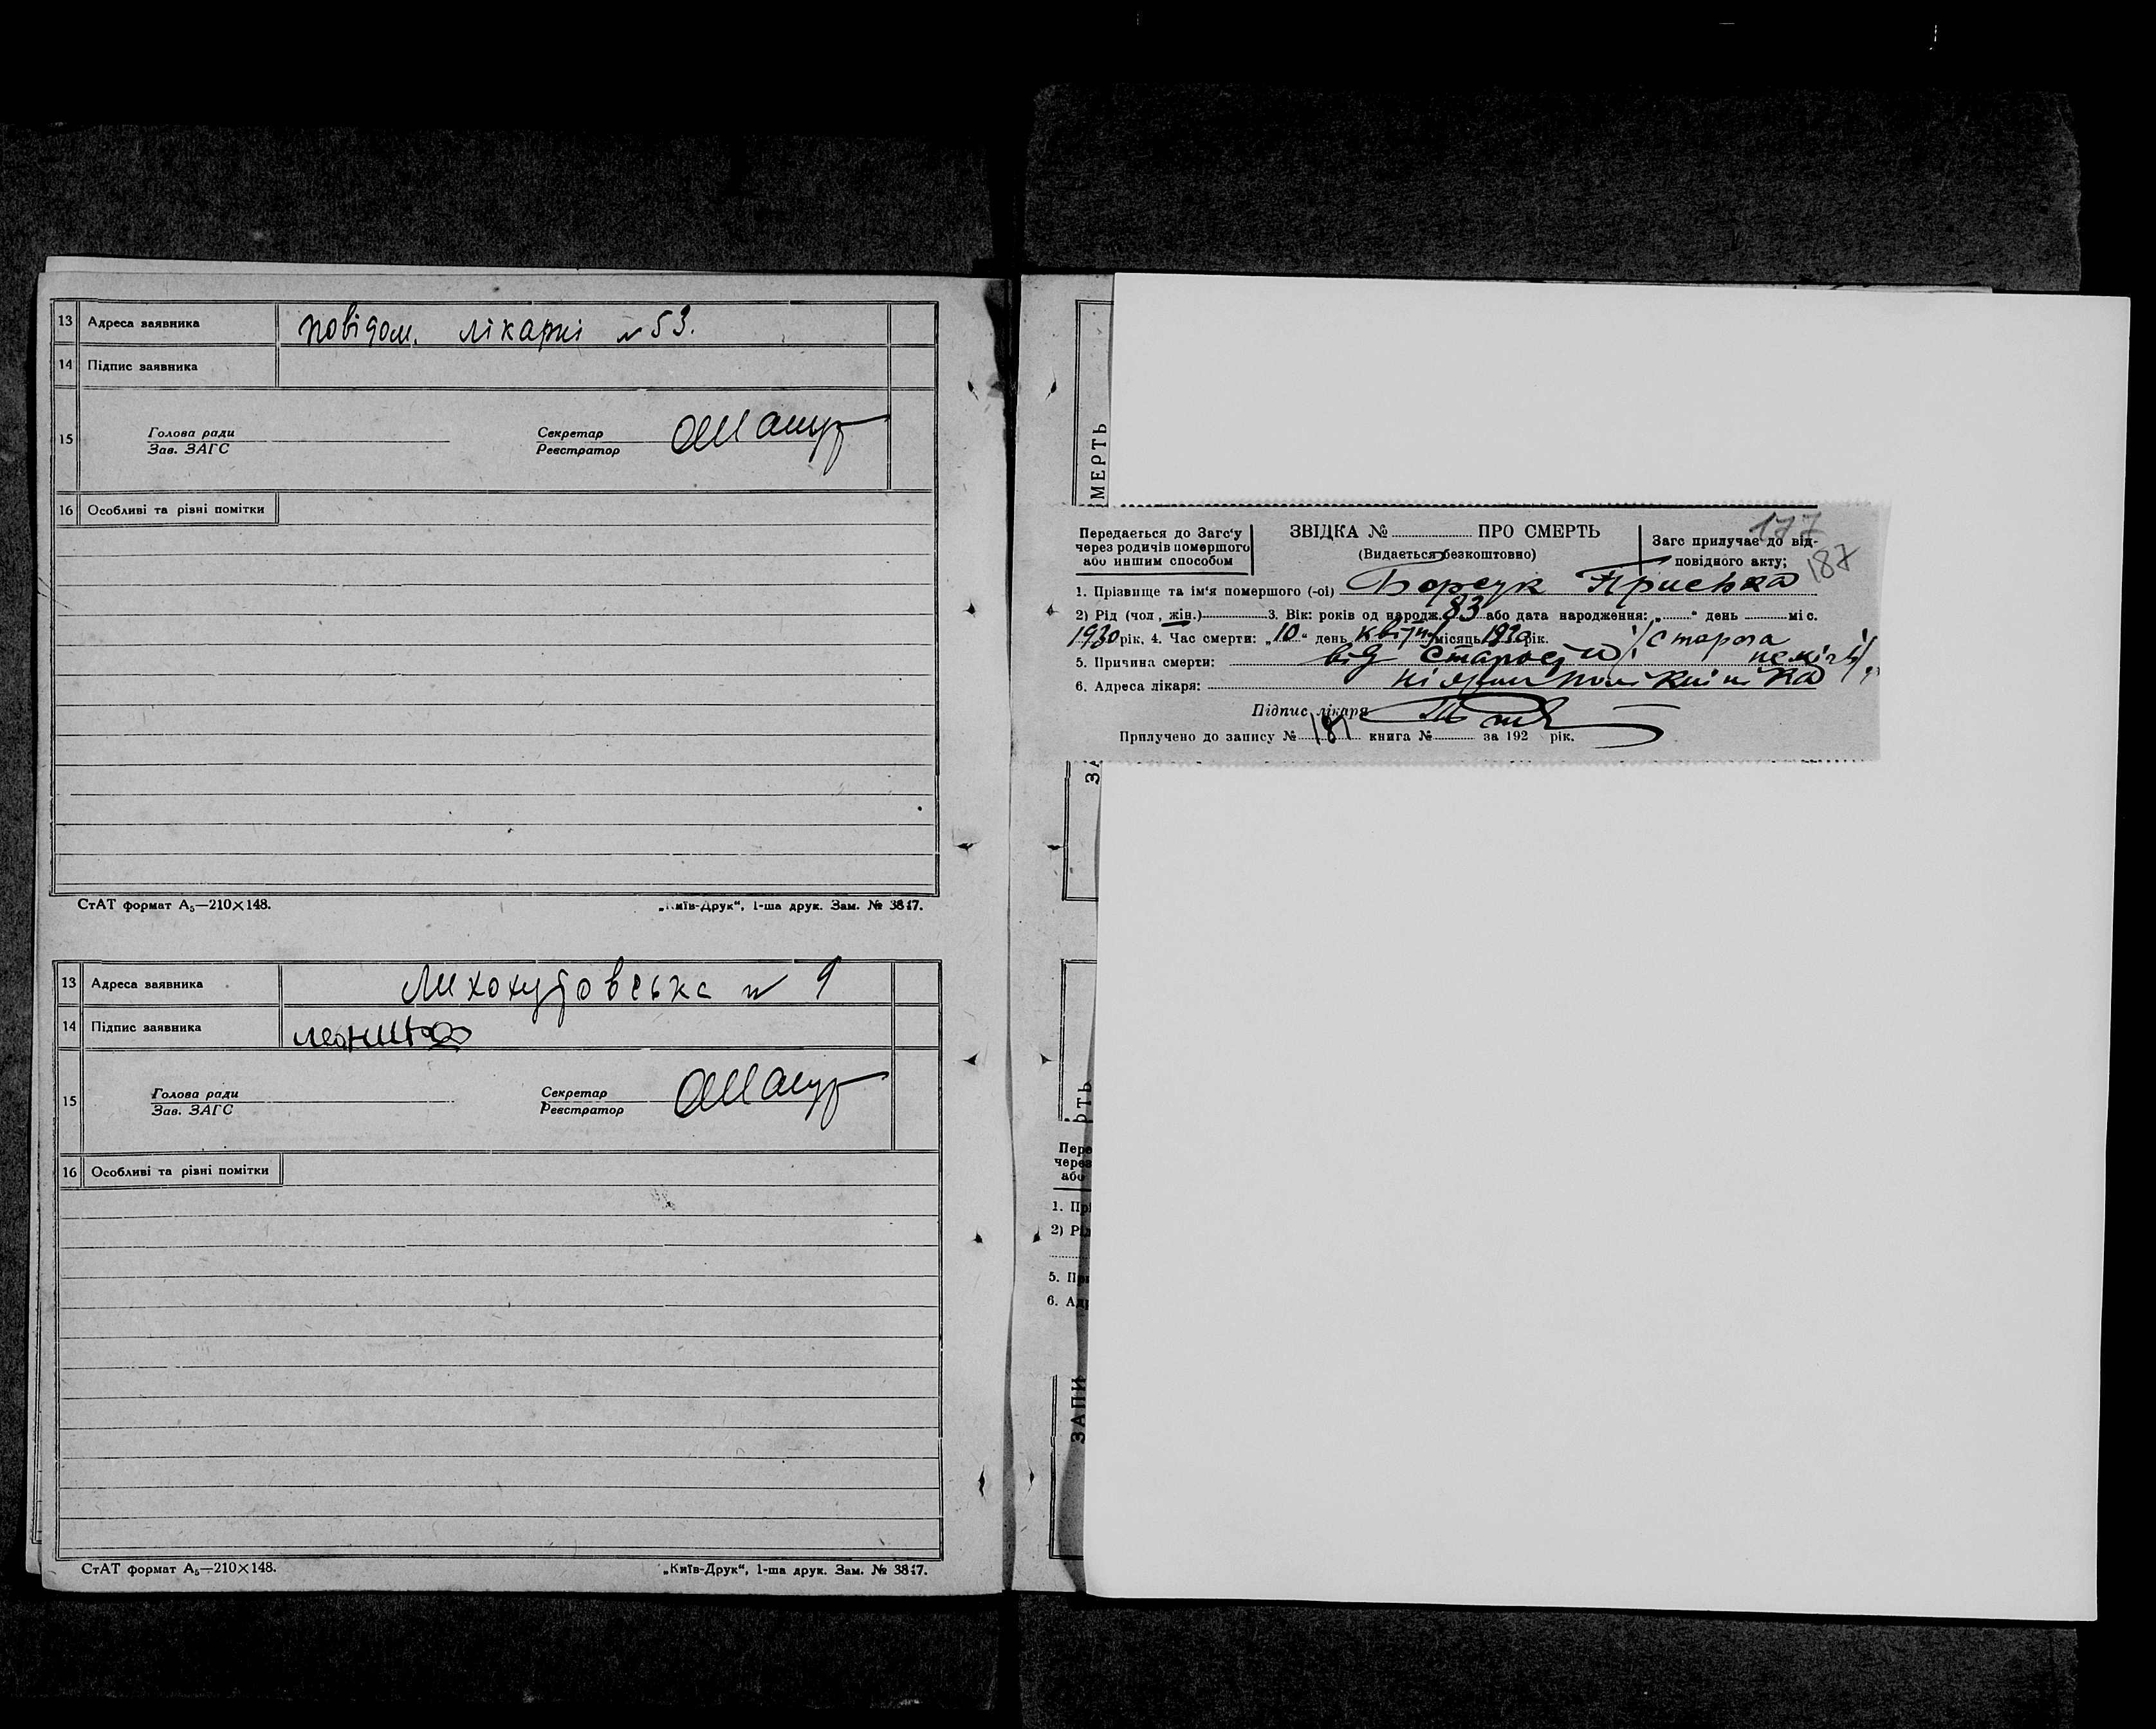 13 Адреса заявника повідом. лікарні № 53.
14 Підпис заявника
15 Голова ради Секретар
Зав. ЗАГС Реєстратор
16 Особливі та рівні помітки
СтАТ формат А₅—210×148. „Київ-Друк“, 1-ша друк. Зам. № 3817.
13 Адреса заявника № 9
14 Підпис заявника
15 Голова ради Секретар
Зав. ЗАГС Реєстратор
16 Особливі та рівні помітки
СтАТ формат А₅—210×148. „Київ-Друк“, 1-ша друк. Зам. № 3817.
МЕРТЬ
177
187
Передається до Загс'у
через родичів помершого
або иншим способом
ЗВІДКА № ПРО СМЕРТЬ
(Видається безкоштовно)
Загс прилучає до від-
повідного акту;
1. Прізвище та ім'я помершого (-ої) Борсук Приська
2) Рід (чол, жін.) 3. Вік: років од народж. 83 або дата народження: „ “ день міс.
1930 рік. 4. Час смерти: „10“ день квітн місяць 1930 рік.
5. Причина смерти: від старости /Стареча неміч/
6. Адреса лікаря:
Підпис лікаря
Прилучено до запису № 181 книга № за 192 рік.
ЗА
РТЬ
Пере
через
або
1. Прі
2) Рід
5. При
6. Адр
ЗАПИ